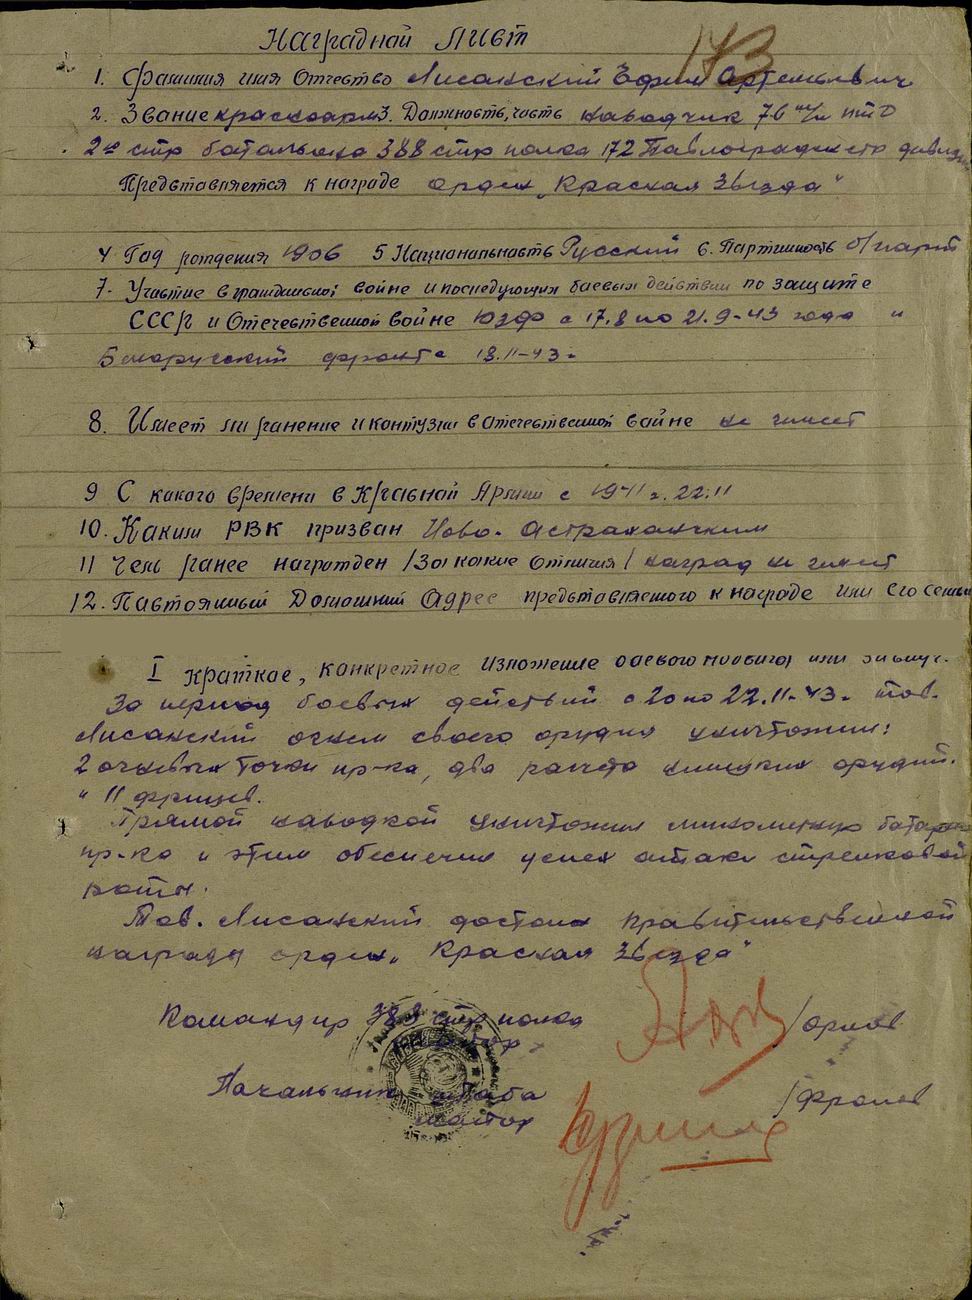 Наградной Лист
173
1. Фамилия имя Отчество Лисанский Ефим Артемьевич
2. Звание красноарм 3. Должность, часть наводчик 76 м/м пто
2го стр батальона 388 стр полка 172 Павлоградской стр дивизии
Представляется к награде орден „Красная Звезда"
4 Год рождения 1906 5 Национальность Русский 6. Партийность б/парт
7. Участие в гражданской войне и последующих боевых действий по защите
СССР и Отечественной войне ЮЗФ с 17.8 по 21.9-43 года и
Белорусский фронт с 13.11-43 г
8. Имеет ли ранение и контузии в отечественной войне не имеет
9 С какого времени в Красной Армии с 1941 г. 22.11
10. Каким РВК призван Ново-Астраханским
11 Чем ранее награжден /За какие отличия/ наград не имеет
12. Настоянный Домашний Адрес представляемого к награде или его семьи
I краткое, конкретное изложение боевого подвига или заслуг.
За период боевых действий с 20 по 22.11-43 г. тов.
Лисанский огнем своего орудия уничтожил:
2 огневых точки пр-ка, два расчета немецких орудий.
и 11 фрицев.
Прямой наводкой уничтожил минометную батарею
пр-ка и этим обеспечил успех атаки стрелковой
роты.
Тов. Лисанский достоин правительственной
награды орден „Красная Звезда"
Командир 388 стр полка
майор /Орлов
Начальник штаба
майор /Фролов